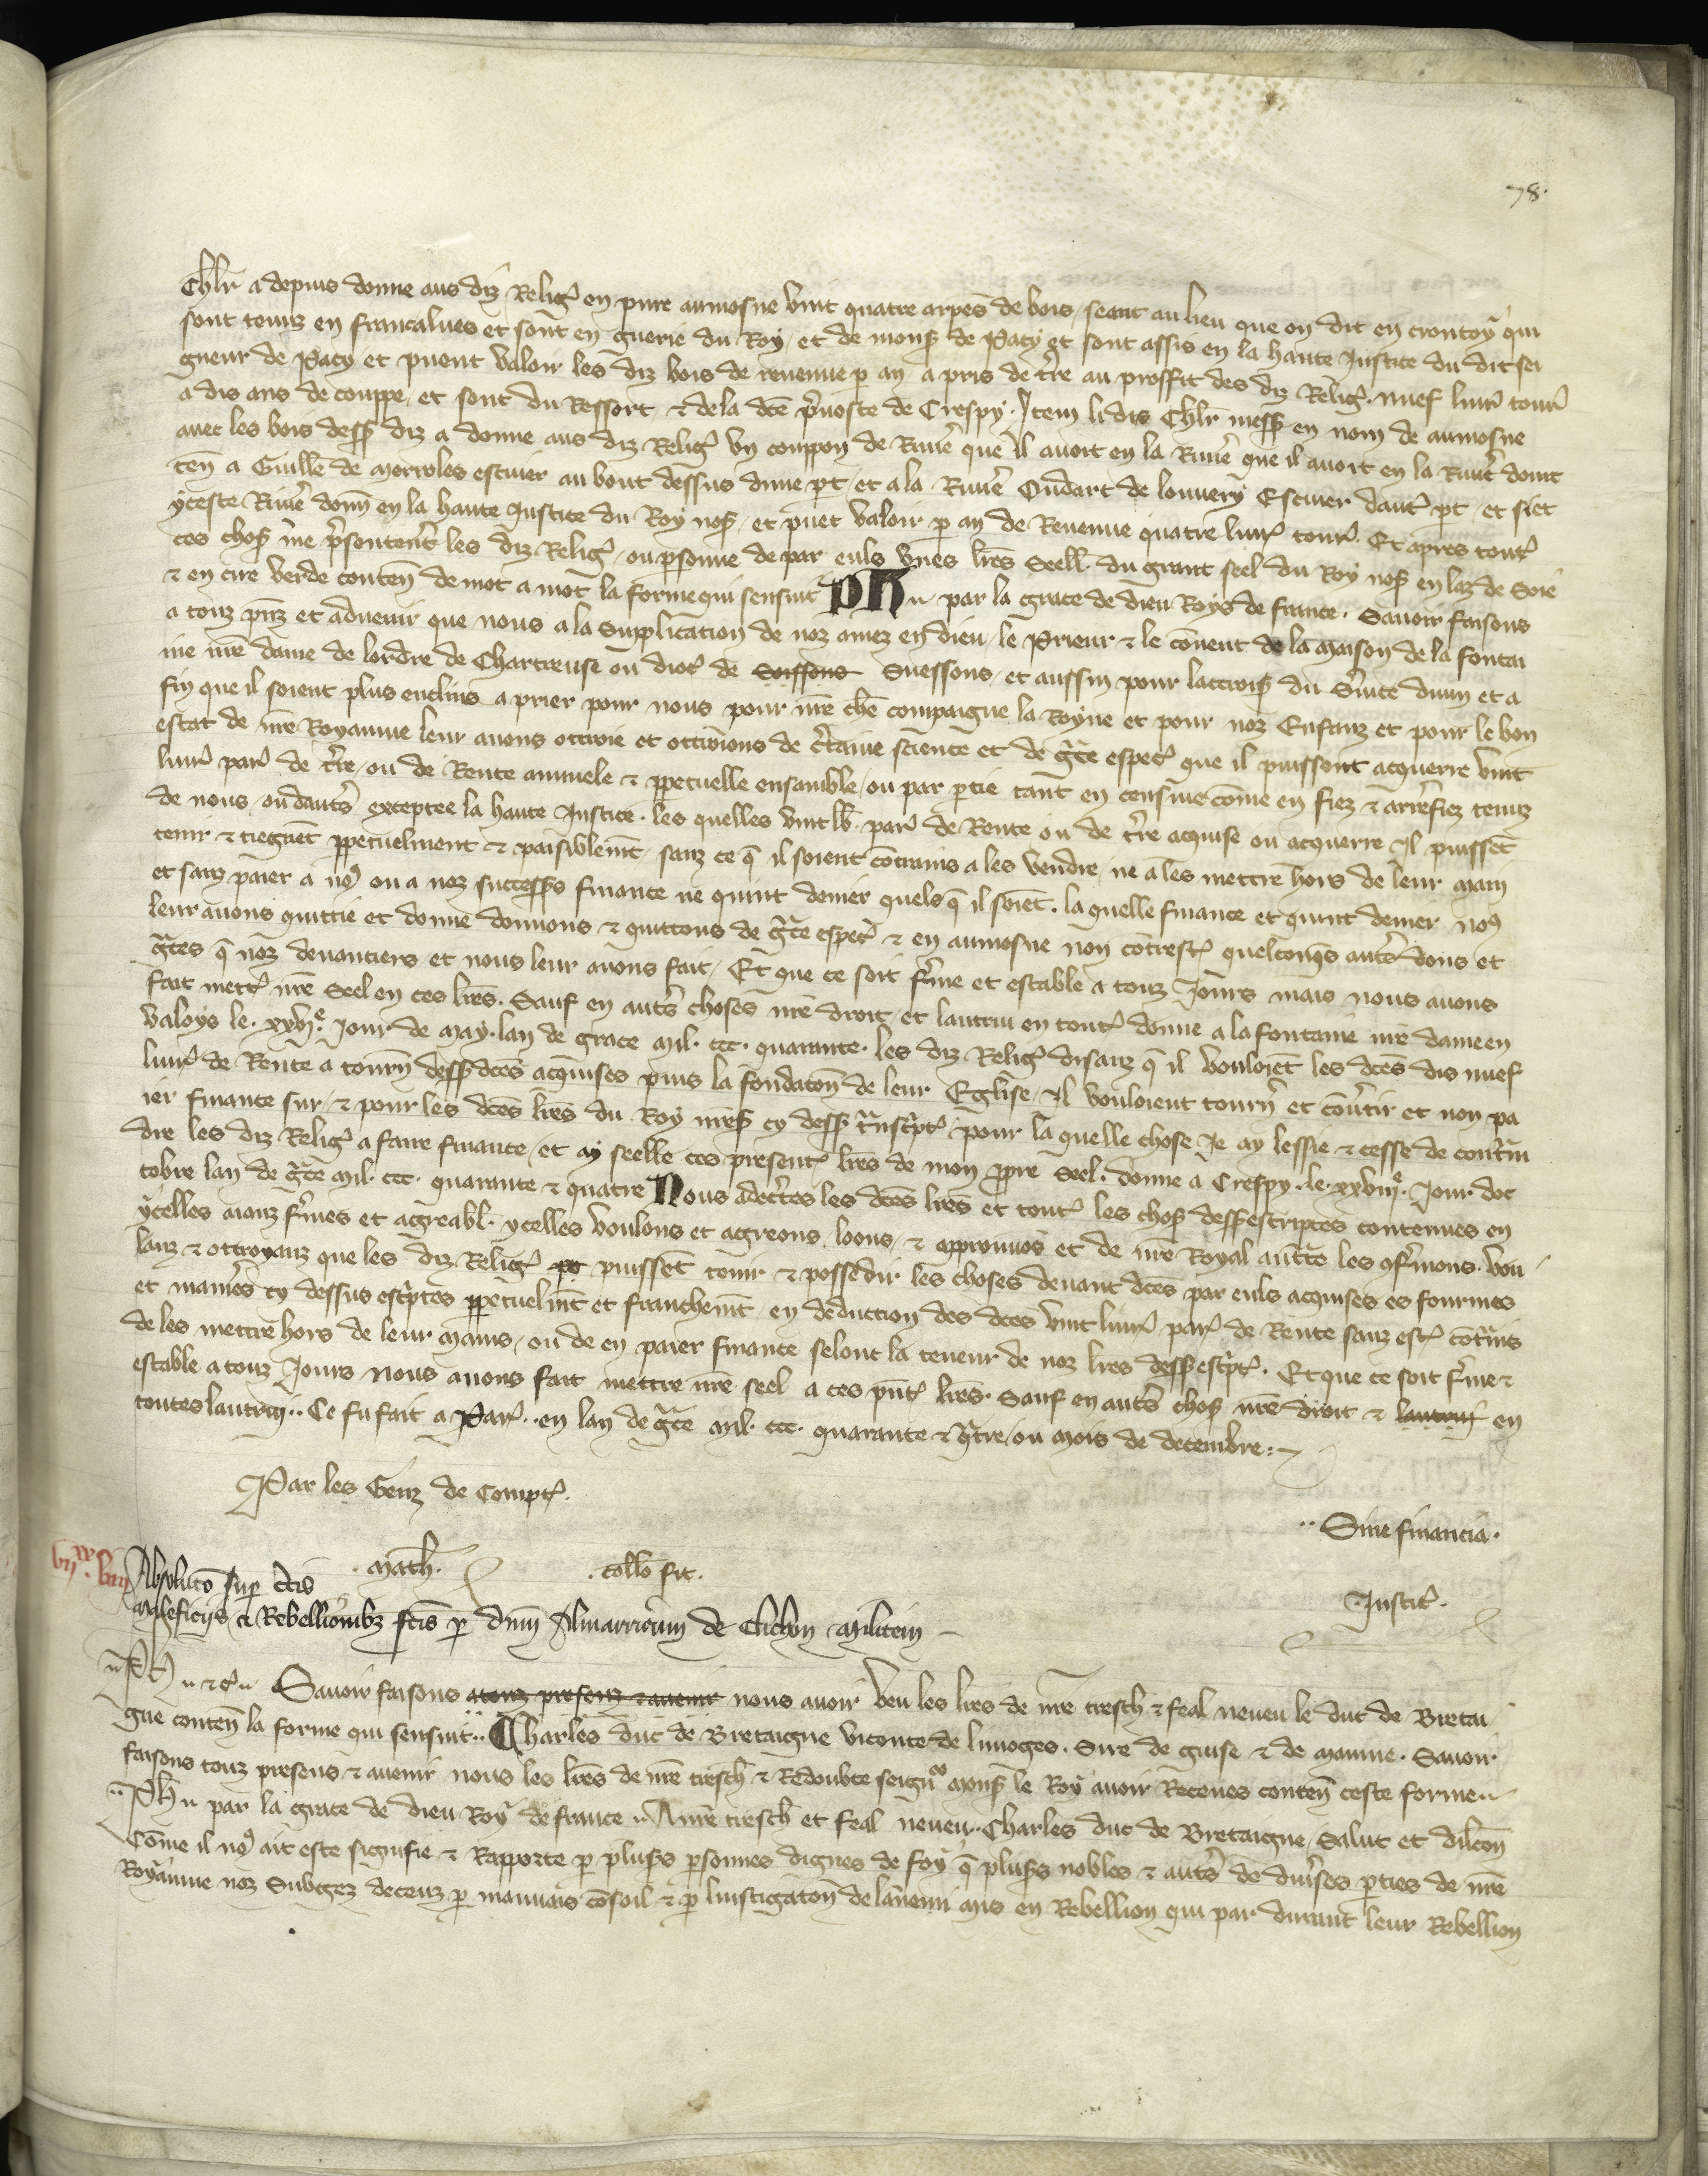 78.
Chlr a depuis donne aus diz Relig en pure aumosne vint quatre arpes de bois seant au lieu que on dit en crontoy qui
sont tenuz en francalues et sont en gruerie du Roy et de mons de Pacy et sont assis en la haute Justice du dit sei
gneur de Pacy et puent valoir les diz bois de revenue p an a pris de tre au proffit des diz Relig. nuef livr tour
a dis ans de couppe et sont du Ressort & de la dce pvoste de Crespy. Item li dis Chlr mess en nom de aumosne
avec les bois dess diz a donne aus diz Relig un coupon de Rivie que il avoit en la Rivie que il avoit en la Rivie dont
ten a Guille de Mercoles escuier au bout dessus dune pt et a la Rivie Oudart de louvery Escuier daut pt et siet
yceste Rivie donn en la haute Justice du Roy nos et puet valoir p an de Revenue quatre livr tour. Et apres tout
ces chos me psentert les diz Relig ou psonne de par euls unes lres Seell du grant seel du Roy nos en laz de Soie
& en cire verde conten de mot a mot la forme qui sensuit Ph par la grace de dieu Roys de france. Savoir faisons
a touz pnz et advenir que nous a la Supplication de noz amez en dieu le Prieur & le couvent de la maison de la fontai
ne nre dame de lordre de Chartreuse ou dioc de Soissons Suessons et aussin pour lacrois du Svice divin et a
fin que il soient plus enclins a prier pour nous pour nre che compaigne la Royne et pour noz Enfanz et pour le bon
estat de nre Royaume leur avons ottroie et ottroions de ctaine science et de gce espec que il puissent acquerre vint
livr par de tre ou de Rente annuele & ppetuelle ensamble ou par ptie tant en censive come en fiez & arrefiez tenuz
de nous ou dautr exceptee la haute Justice. les quelles vint lb par de Rente ou de tre acquise ou acquerre Il puisset
tenir & tieguet ppetuelment & paisiblemt sanz ce q il soient contrains a les vendre ne a les mettre hors de leur main
et sanz paier a no ou a noz success finance ne quint denier quels q il soiet. la quelle finance et quint denier no
leur avons quittie et donne donnons & quittons de gce espec & en aumosne non contrest quelconqs autr dons et
graces q noz devantiers et nous leur avons fait. Et que ce soit fme et estable a touz Jours mais nous avons
fait mett nre Seel en ces lres. Sauf en autr choses nre droit et lautrui en tout donne a la fontaine nre dame en
Valoys le. xxvj.e Jour de May lan de grace mil. ccc. quarante. les diz Relig disanz q il vouloiet les dces dis nuef
livr de Rente a tourn dess dces acquises puis la fondaton de leur Eglise Il vouloient tourn et contir et non pa
ier finance sur & pour les dces lres du Roy nres cy dess tnscpt pour la quelle chose Je ay lessie & cesse de contin
dre les diz Relig a faire finance et ay seelle ces present lres de mon ppre Seel. donne a Crespy le xxviij.e Jour doc
tobre lan de gce mil. ccc. quarante & quatre Nous adectes les dces lres et tout les chos dess escriptes contenues en
ycelles aianz fmes et agreabl ycelles voulons et agreons loons & approuvos et de nre Royal auctte les cfmons. vou
lanz & ottroyanz que les diz Relig po puisset tenir & possedir les choses devant dces par euls acquises es fourmes
et maniers cy dessus escptes ppetuelmt et franchemt en deduction des dces vint livr par de Rente sanz est contains
de les mettre hors de leur mains ou de en paier finance selont la teneur de noz lres dess escpt. Et que ce soit fme &
estable a touz Jours nous avons fait mettre nre seel a ces pnt lres. Sauf en autr chos nre droit & lautrui en
toutes lautrui.. Ce fu fait a Par. en lan de gce mil. ccc. quarante & qtre ou mois de decembre
Par les Genz de Compt.
Sine financia.
Math. collo fit.
Justic.
vijxx. viij
Absoluto sup ctis
maleficijs & Rebellionibz fcis p dnm Almarricum de Clichon militem
Ph & c Savoir faisons a touz presenz & avenir nous avoir veu les lres de nre tresch & feal neveu le duc de Bretai
gne conten la forme qui sensuit.. Charles duc de Bretaigne viconte de limoges. Sire de guise & de Maine. Savoir
faisons touz presens & avenir nous les lres de nre tresch & Redoubte seign mons le Roy avoir Receues conten ceste forme
Ph par la grace de dieu Roy de france A nre tresch et feal neveu Charles duc de Bretaigne Salut et dilcon
Come il no ait este signifie & Rapporte p pluss psonnes dignes de foy q pluss nobles & autr de divses pties de nre
Royaume noz Subgez deceuz p mauvais coseil & p linstigaton de lanemi mis en Rebellion qui par durant leur Rebellion